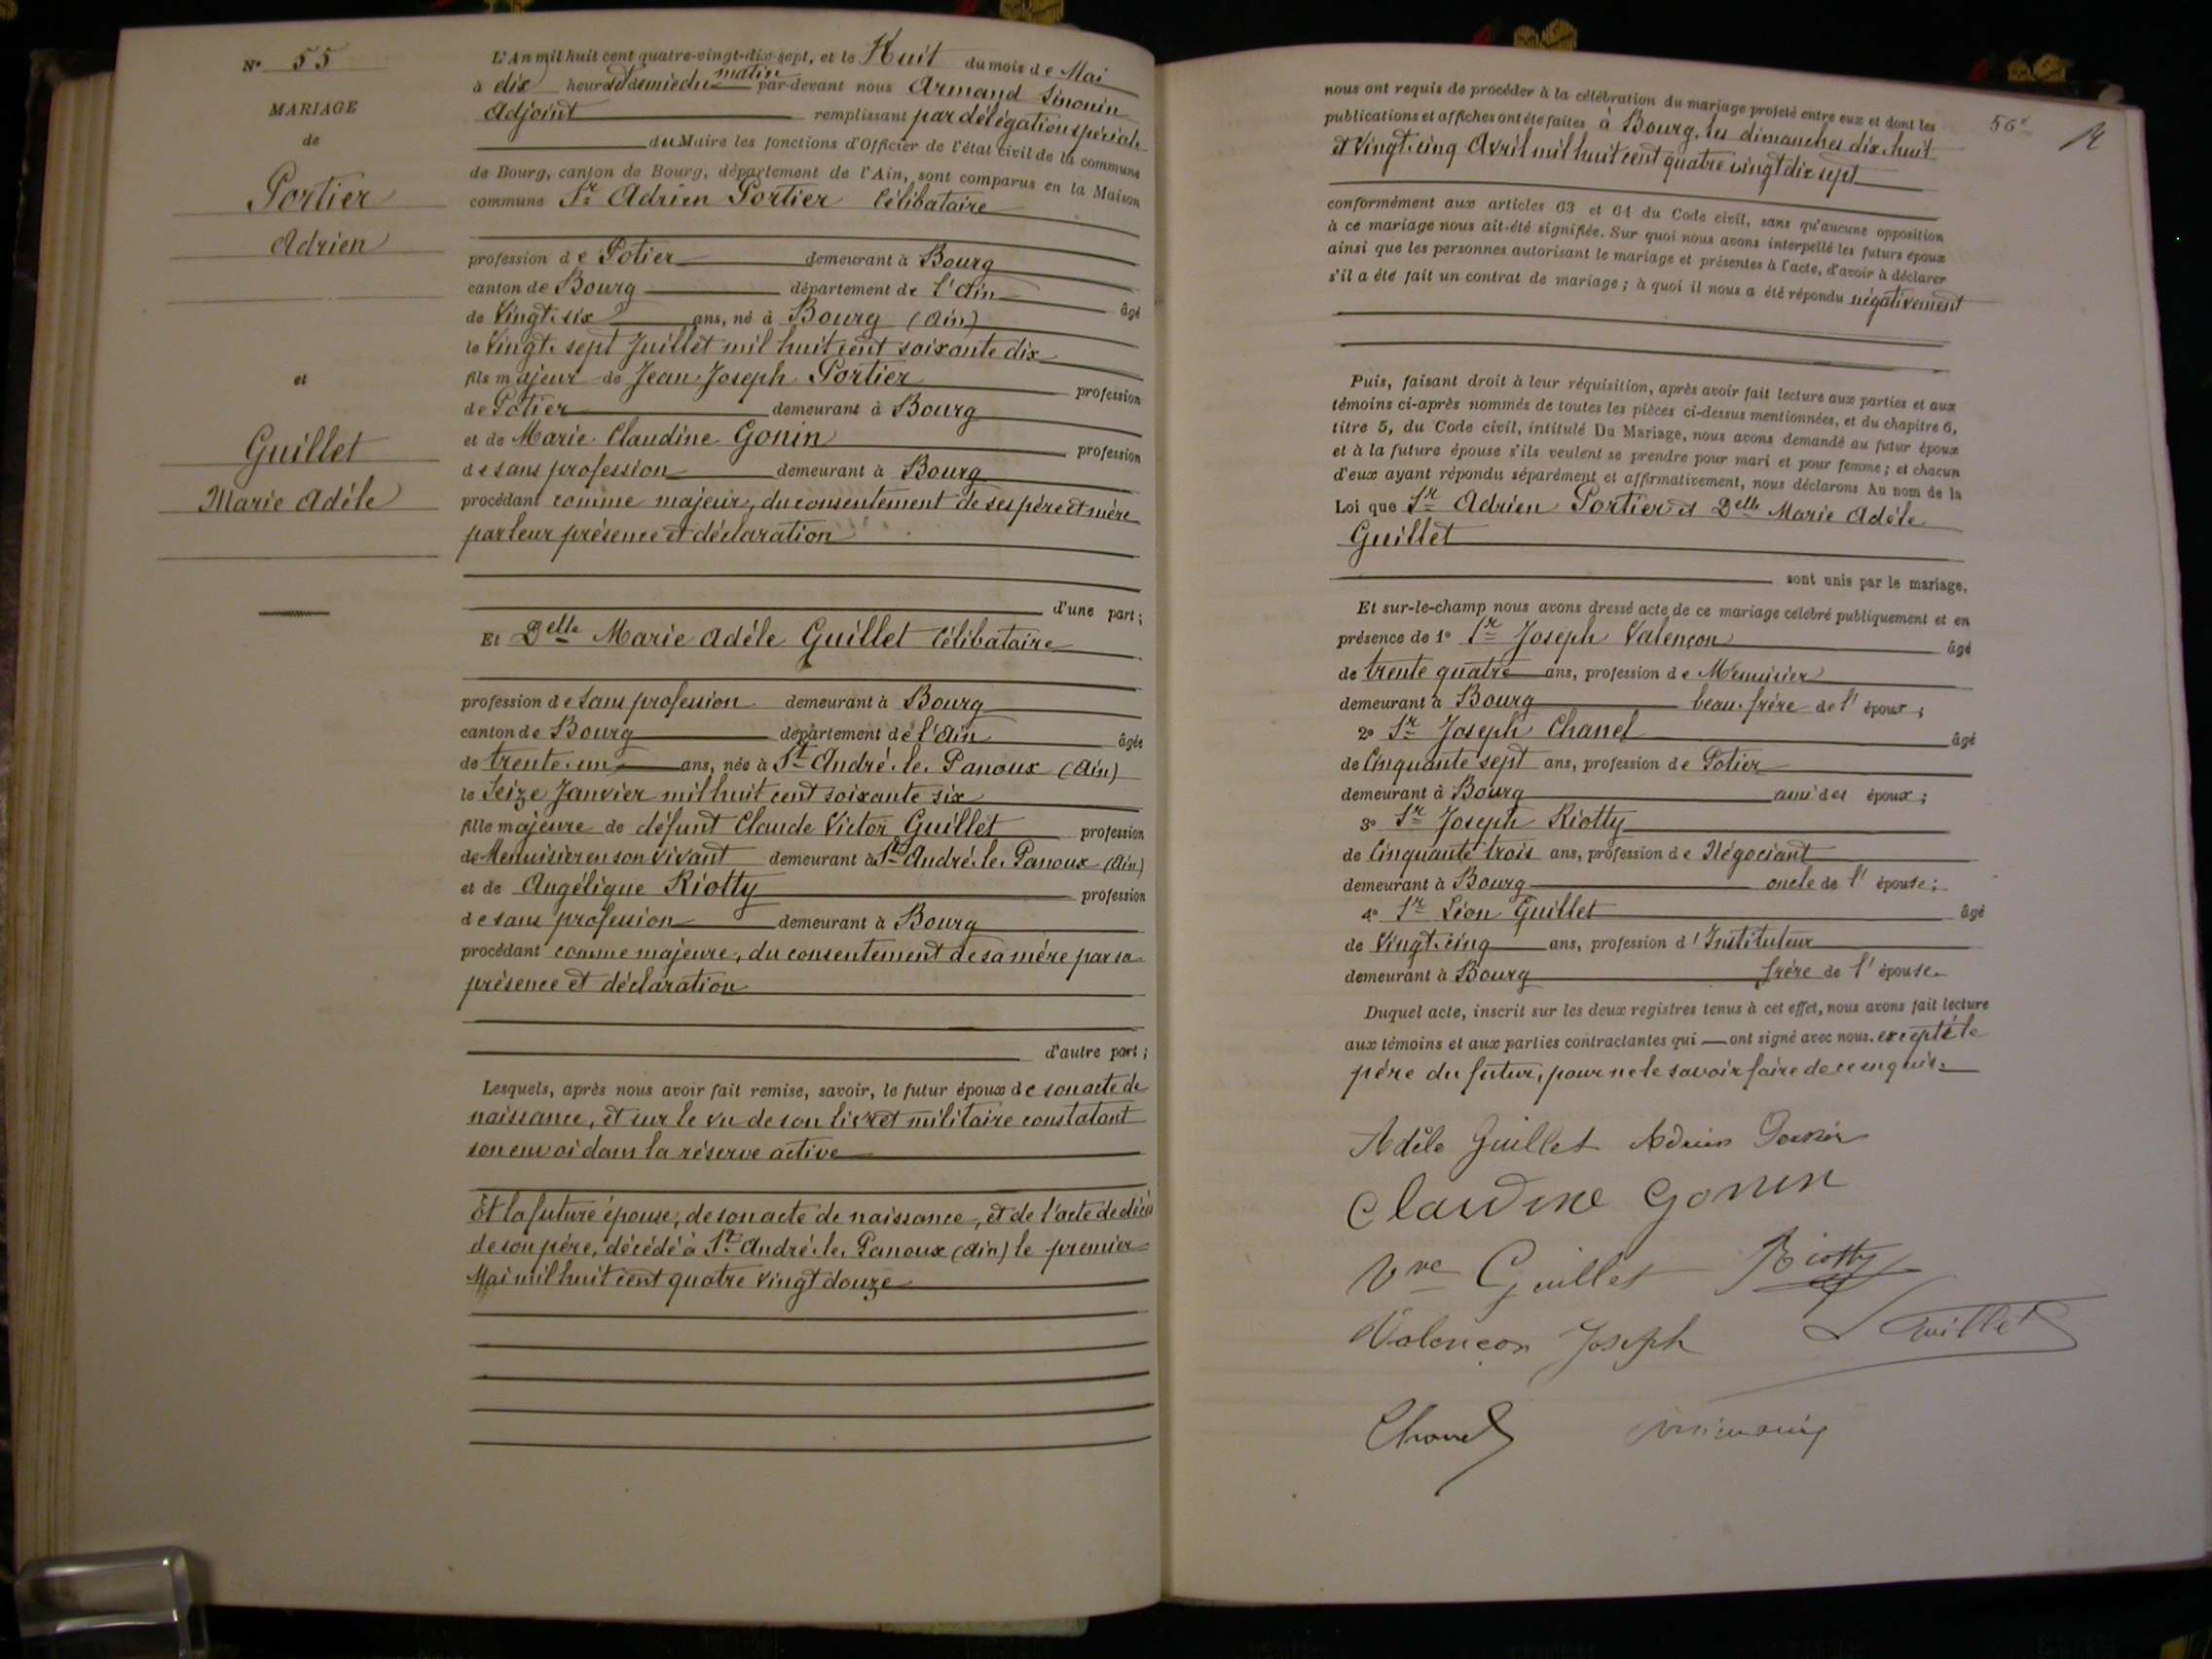 N° 55
MARIAGE
de
Portier
Adrien
et
Guillet
Marie Adèle
L'An mil huit cent quatre-vingt-dix-sept, et le Huit du mois de Mai
à dix heures et demie du matin par-devant nous Armand Sinonin
Adjoint remplissant par délégation spéciale
du Maire les fonctions d'Officier de l'état civil de la commune
de Bourg, canton de Bourg, département de l'Ain, sont comparus en la Maison
commune Sr Adrien Portier Célibataire
profession de Potier demeurant à Bourg
canton de Bourg département de l'Ain âgé
de Vingt-six ans, né à Bourg (Ain)
le Vingt-sept Juillet mil huit cent soixante dix
fils majeur de Jean-Joseph Portier profession
de Potier demeurant à Bourg
et de Marie-Claudine Gonin profession
de sans profession demeurant à Bourg
procédant comme majeur, du consentement de ses père et mère
par leur présence et déclaration
d'une part;
Et Delle Marie Adèle Guillet Célibataire
profession de sans profession demeurant à Bourg
canton de Bourg département de l'Ain âgée
de trente-un ans, née à St André-le-Panoux (Ain)
le Seize Janvier mil huit cent soixante six
fille majeure de défunt Claude Victor Guillet profession
de Menuisier en son vivant demeurant à St André-le-Panoux (Ain)
et de Angélique Riotty profession
de sans profession demeurant à Bourg
procédant comme majeure, du consentement de sa mère par sa
présence et déclaration
d'autre part;
Lesquels, après nous avoir fait remise, savoir, le futur époux de son acte de
naissance, et sur le vu de son livret militaire constatant
son envoi dans la réserve active
Et la future épouse, de son acte de naissance, et de l'acte de décès
de son père, décédé à St André-le-Panoux (Ain) le premier
Mai mil huit cent quatre vingt douze
56e
nous ont requis de procéder à la célébration du mariage projeté entre eux et dont les
publications et affiches ont été faites à Bourg, les dimanches dix-huit
et Vingt-cinq Avril mil huit cent quatre vingt dix sept
conformément aux articles 63 et 64 du Code civil, sans qu'aucune opposition
à ce mariage nous ait été signifiée. Sur quoi nous avons interpellé les futurs époux
ainsi que les personnes autorisant le mariage et présentes à l'acte, d'avoir à déclarer
s'il a été fait un contrat de mariage; à quoi il nous a été répondu négativement
Puis, faisant droit à leur réquisition, après avoir fait lecture aux parties et aux
témoins ci-après nommés de toutes les pièces ci-dessus mentionnées, et du chapitre 6,
titre 5, du Code civil, intitulé Du Mariage, nous avons demandé au futur époux
et à la future épouse s'ils veulent se prendre pour mari et pour femme; et chacun
d'eux ayant répondu séparément et affirmativement, nous déclarons Au nom de la
Loi que Sr Adrien Portier et Delle Marie Adèle
Guillet
sont unis par le mariage.
Et sur-le-champ nous avons dressé acte de ce mariage célébré publiquement et en
présence de 1° Sr Joseph Valençon âgé
de trente quatre ans, profession de Menuisier
demeurant à Bourg beau-frère de l'époux;
2° Sr Joseph Chanel âgé
de Cinquante sept ans, profession de Potier
demeurant à Bourg ami des époux;
3° Sr Joseph Riotty
de Cinquante trois ans, profession de Négociant
demeurant à Bourg oncle de l'épouse;
4° Sr Léon Guillet âgé
de Vingt-cinq ans, profession d'Instituteur
demeurant à Bourg frère de l'épouse.
Duquel acte, inscrit sur les deux registres tenus à cet effet, nous avons fait lecture
aux témoins et aux parties contractantes qui ont signé avec nous, excepté le
père du futur, pour ne le savoir faire de ce enquis.
Adèle Guillet Adrien Portier
Claudine Gonin
Vve Guillet Riotty
Valençon Joseph L Guillet
Chanel